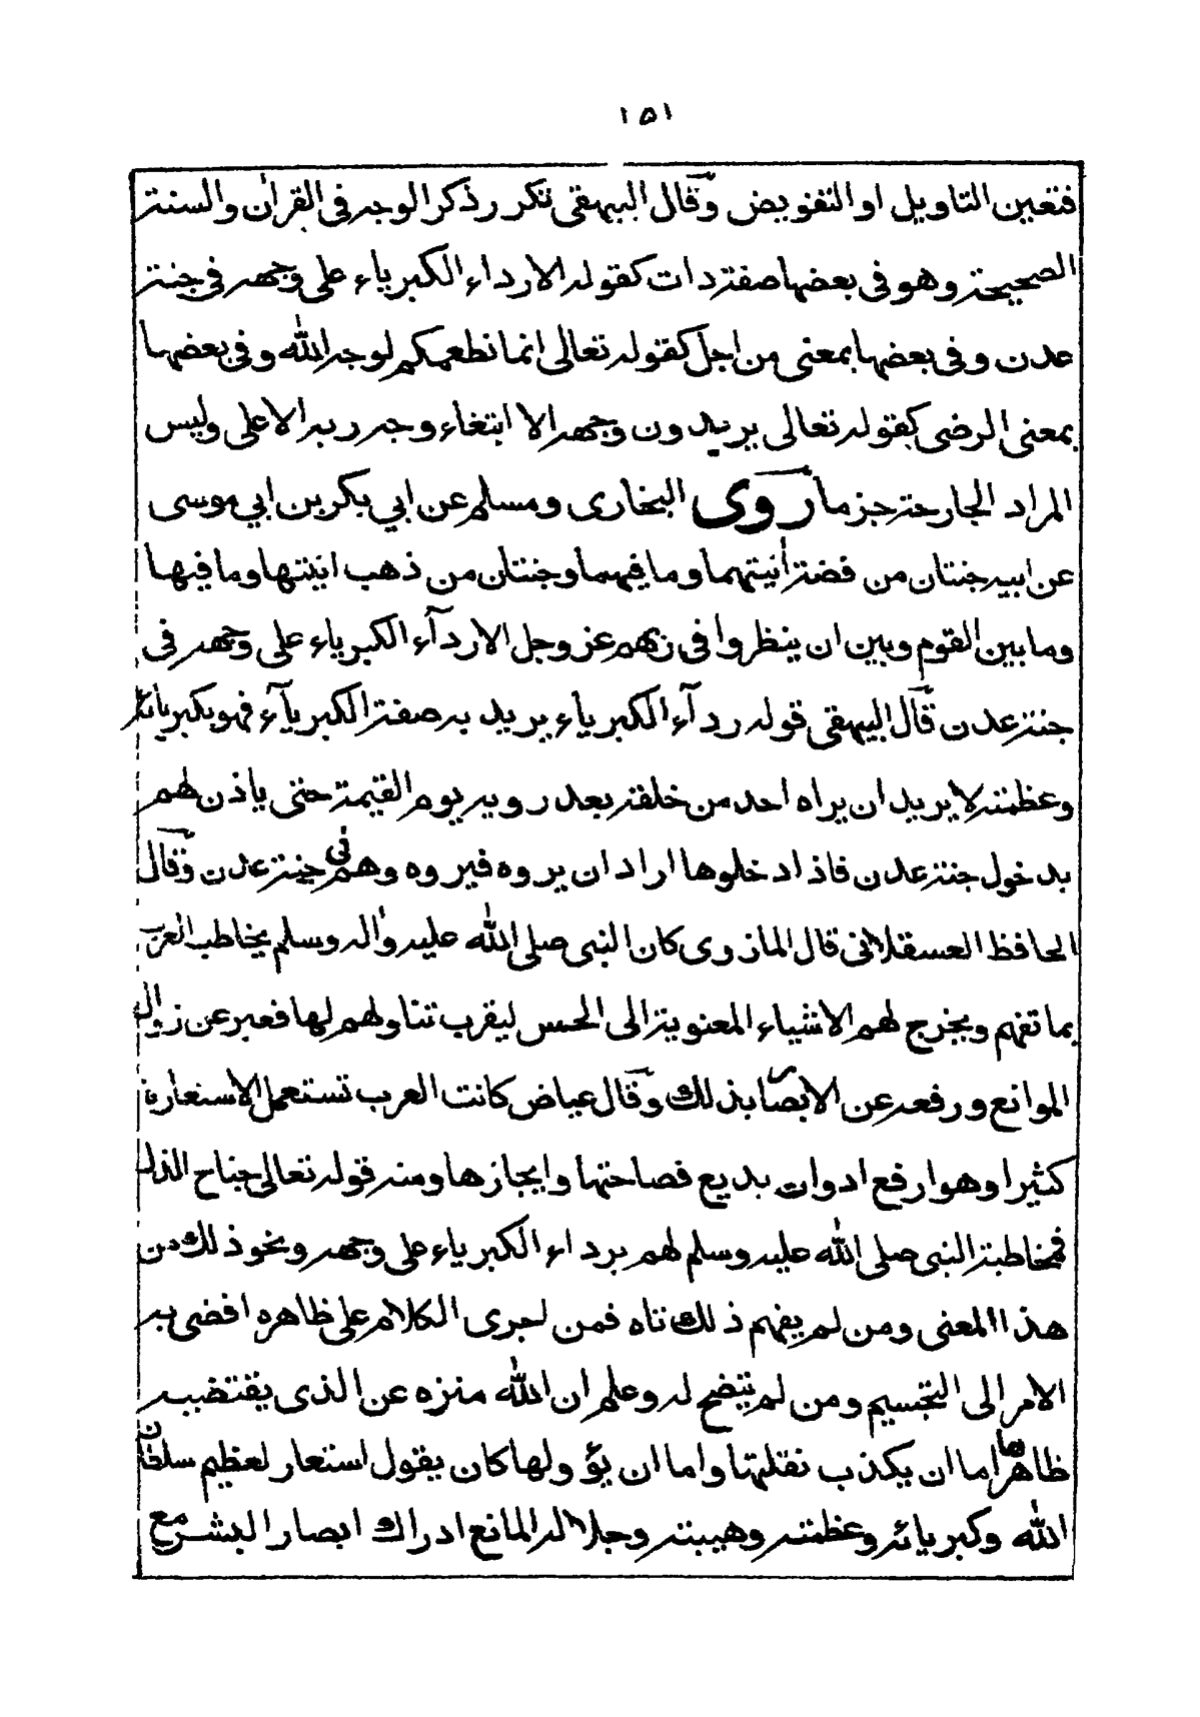 ١٥١
فتعين التاويل او التفويض وقال البيهقى تكرر ذكر الوجه فى القرآن والسنة
الصحيحة وهو فى بعضها صفة ذات كقوله الا رداء الكبرياء على وجهه فى جنة
عدن وفى بعضها بمعنى من اجل كقوله تعالى انما نطعمكم لوجه الله وفى بعضها
بمعنى الرضى كقوله تعالى يريدون وجهه الا ابتغاء وجه ربه الاعلى وليس
المراد الجارحة جزما روى البخارى ومسلم عن ابي بكر بن ابي موسى
عن ابيه جنتان من فضة أنيتهما وما فيهما وجنتان من ذهب انيتها وما فيها
وما بين القوم وبين ان ينظروا فى ربهم عز وجل الا ردآء الكبرياء على وجهه فى
جنة عدن قال البيهقى قوله ردآء الكبرياء يريد به صفة الكبريآء فهو بكبريائه
وعظمته لا يريد ان يراه احد من خلقه بعد رويه يوم القيمة حتى ياذن لهم
بدخول جنة عدن فاذا دخلوها اراد ان يروه فيروه وهم فى جنة عدن وقال
الحافظ العسقلانى قال المازوى كان النبى صلى الله عليه وأله وسلم يخاطب العرب
بما تفهم ويخرج لهم الاشياء المعنوية الى الحس ليقرب تناولهم لها فعبر عن زوال
الموانع ورفعه عن الابصا بذلك وقال عياض كانت العرب تستعمل الاستعارة
كثيرا وهو ارفع ادوات بديع فصاحتها وايجازها ومنه قوله تعالى جناح الذل
فمخاطبة النبى صلى الله عليه وسلم لهم برداء الكبرياء على وجهه ونحو ذلك من
هذا المعنى ومن لم يفهم ذلك تاه فمن اجرى الكلام على ظاهره افضى به
الامر الى التجسيم ومن لم يتضح له وعلم ان الله منزه عن الذى يقتضيه
ظاهرها اما ان يكذب نقلتها واما ان يؤولها كان يقول استعار لعظيم سلطان
الله وكبريائه وعظمته وهيبته وجلاله المانع ادراك ابصار البشر مع